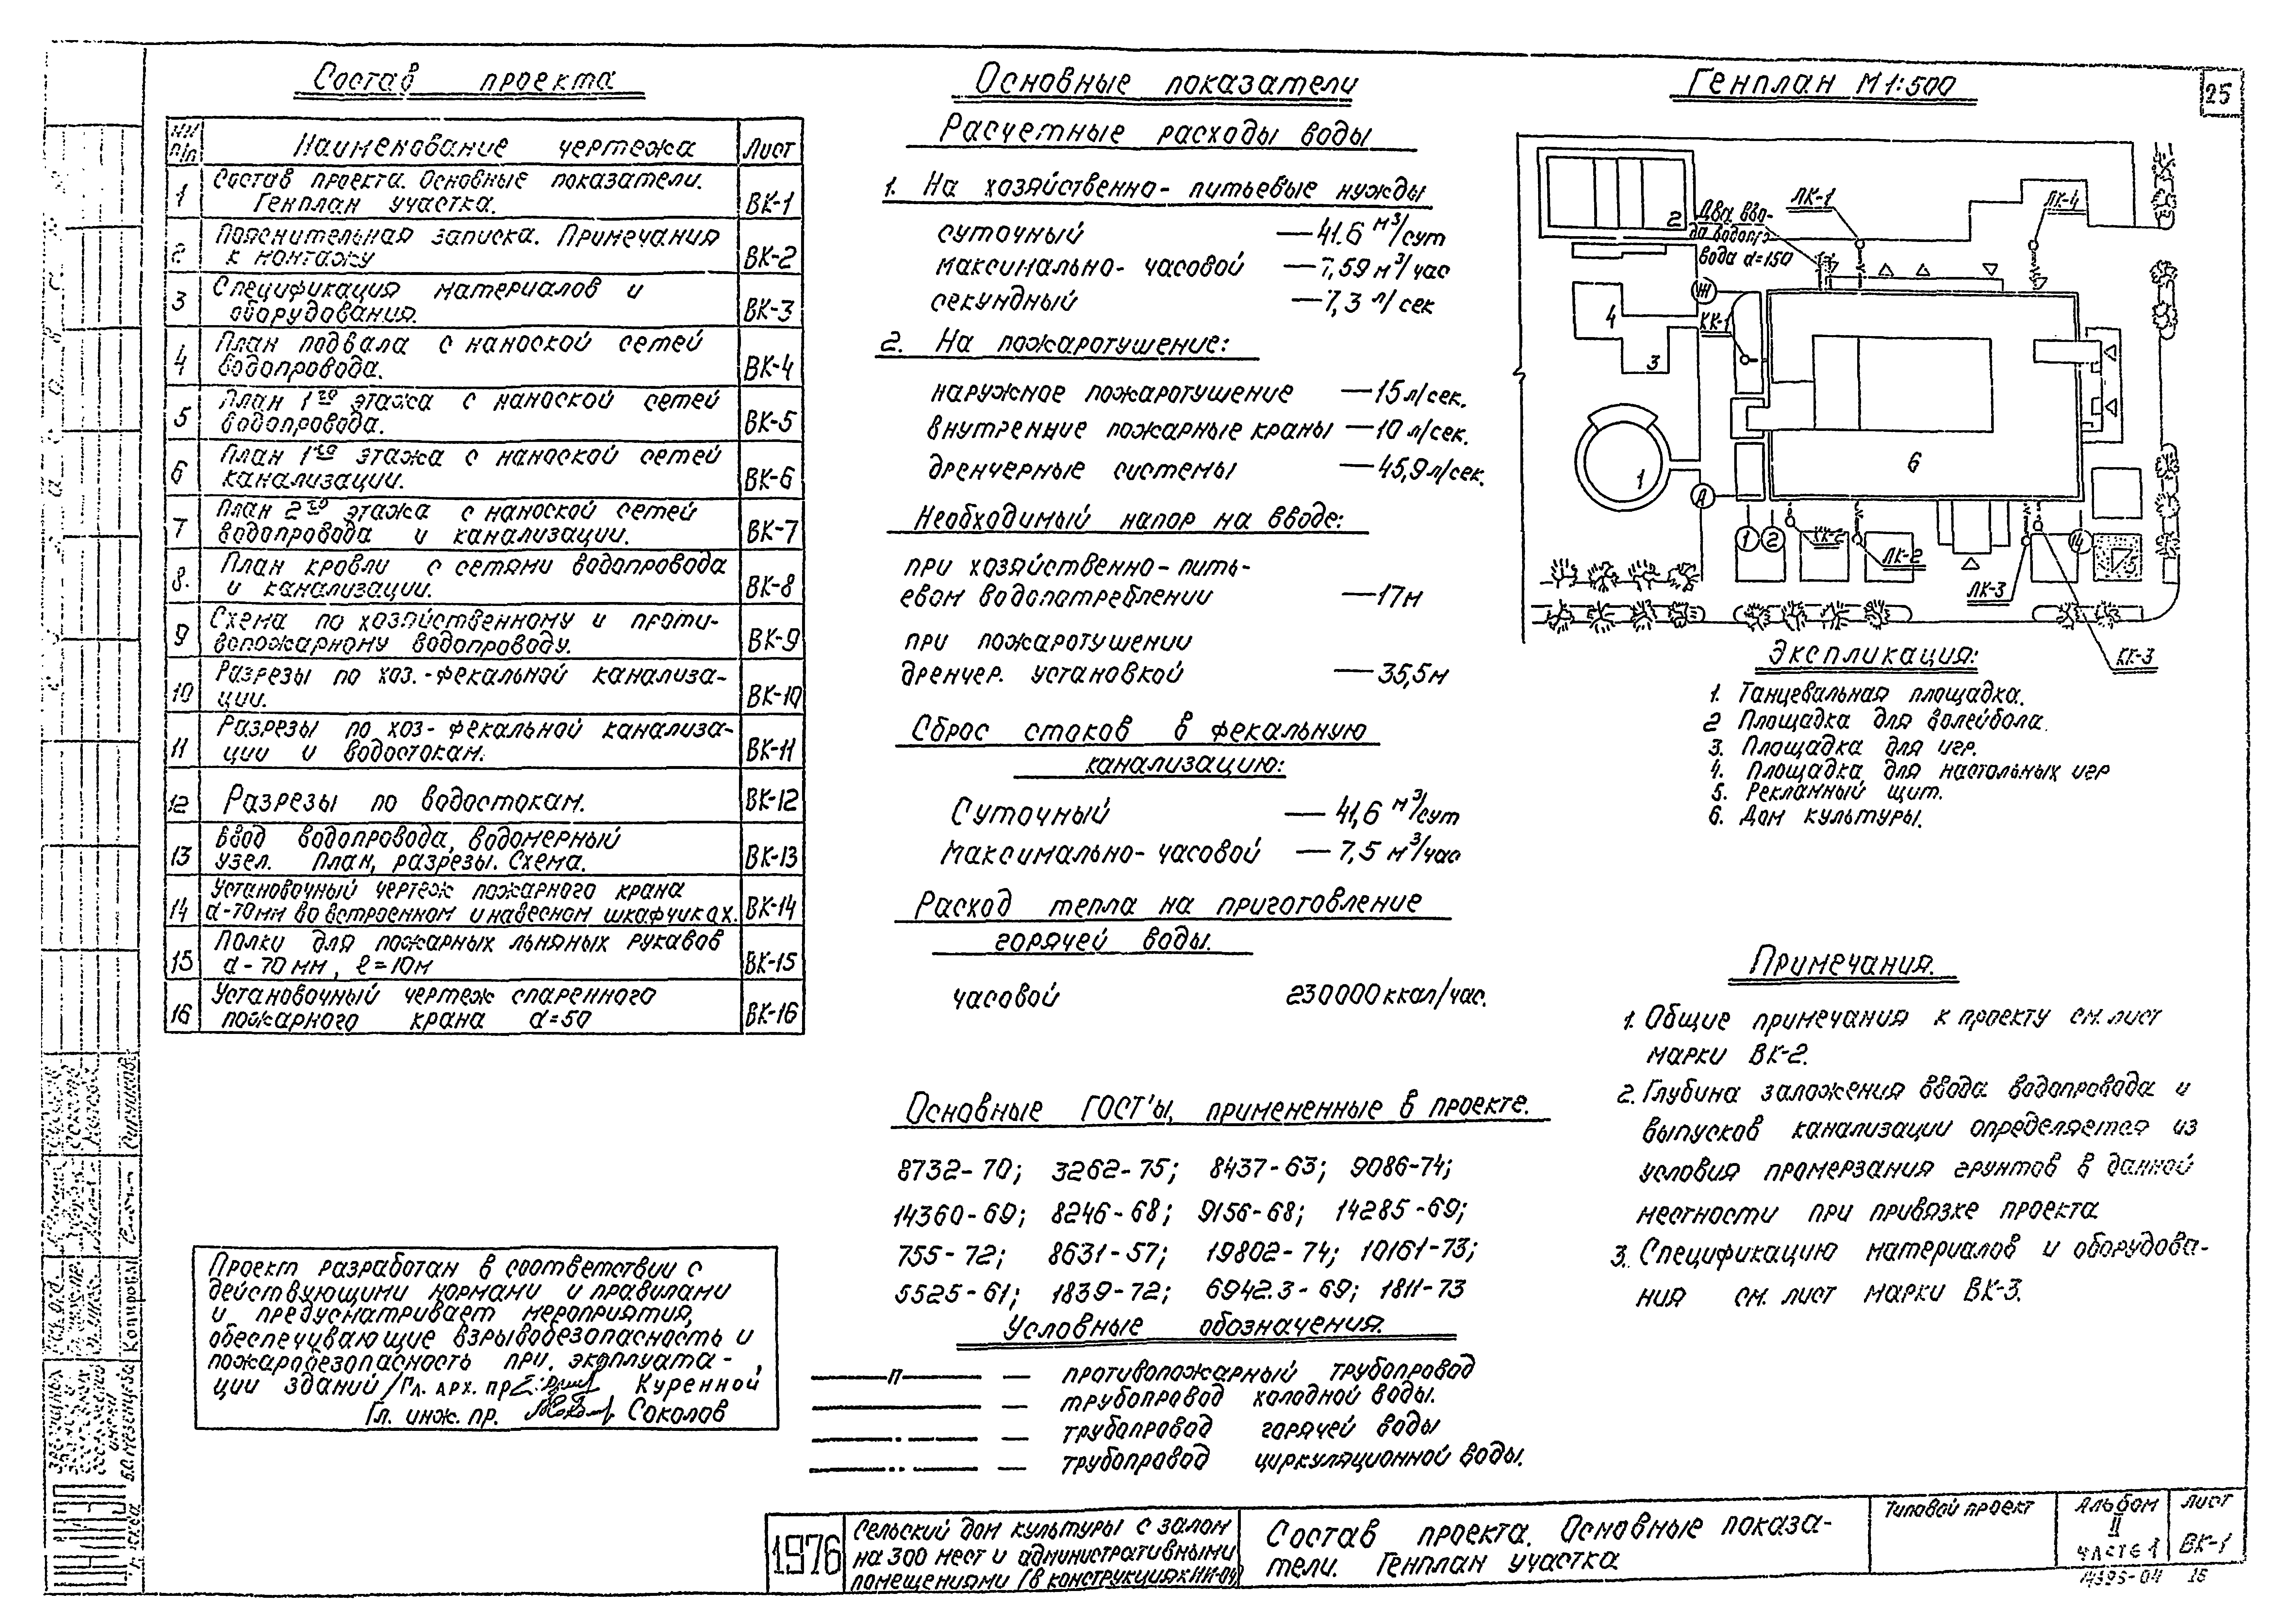 25
Состав проекта
NN п/п Наименование чертежа Лист
1 Состав проекта. Основные показатели.
Генплан участка. ВК-1
2 Пояснительная записка. Примечания
к монтажу ВК-2
3 Спецификация материалов и
оборудования. ВК-3
4 План подвала с наноской сетей
водопровода. ВК-4
5 План 1го этажа с наноской сетей
водопровода. ВК-5
6 План 1го этажа с наноской сетей
канализации. ВК-6
7 План 2го этажа с наноской сетей
водопровода и канализации. ВК-7
8. План кровли с сетями водопровода
и канализации. ВК-8
9 Схема по хозяйственному и проти-
вопожарному водопроводу. ВК-9
10 Разрезы по хоз.-фекальной канализа-
ции. ВК-10
11 Разрезы по хоз-фекальной канализа-
ции и водостокам. ВК-11
12 Разрезы по водостокам. ВК-12
13 Ввод водопровода, водомерный
узел. План, разрезы. Схема. ВК-13
14 Установочный чертеж пожарного крана
d-70мм во встроенном и навесном шкафчиках. ВК-14
15 Полки для пожарных льняных рукавов
d-70мм, ℓ=10м ВК-15
16 Установочный чертеж спаренного
пожарного крана d=50 ВК-16
Проект разработан в соответствии с
действующими нормами и правилами
и предусматривает мероприятия,
обеспечивающие взрывобезопасность и
пожаробезопасность при эксплуата-
ции зданий /Гл. арх. пр. Куренной
Гл. инж. пр. Соколов
Основные показатели
Расчетные расходы воды
1. На хозяйственно-питьевые нужды
суточный — 41.6 м³/сут
максимально-часовой — 7,59 м³/час
секундный — 7,3 л/сек
2. На пожаротушение:
наружное пожаротушение — 15 л/сек.
внутренние пожарные краны — 10 л/сек.
дренчерные системы — 45,9 л/сек.
Необходимый напор на вводе:
при хозяйственно-пить-
евом водопотреблении — 17м
при пожаротушении
дренчер. установкой — 35,5м
Сброс стоков в фекальную
канализацию:
Суточный — 41,6 м³/сут
Максимально-часовой — 7,5 м³/час
Расход тепла на приготовление
горячей воды.
часовой 230000 ккал/час.
Основные ГОСТ'ы, примененные в проекте.
8732-70; 3262-75; 8437-63; 9086-74;
14360-69; 8246-68; 9156-68; 14285-69;
755-72; 8631-57; 19802-74; 10161-73;
5525-61; 1839-72; 6942.3-69; 1811-73
Условные обозначения.
п — противопожарный трубопровод
— трубопровод холодной воды.
— трубопровод горячей воды
— трубопровод циркуляционной воды.
Генплан М 1:500
2
Два вво-
да водопро-
вода d=150
ЛК-1
ЛК-4
Ж
КК-1
4
3
1
6
А
1
2
КК-2
ЛК-2
ЛК-3
14
5
КК-3
Экспликация:
1. Танцевальная площадка.
2 Площадка для волейбола.
3. Площадка для игр.
4. Площадка для настольных игр
5. Рекламный щит.
6. Дом культуры.
Примечания.
1. Общие примечания к проекту см. лист
марки ВК-2.
2. Глубина заложения ввода водопровода и
выпусков канализации определяется из
условия промерзания грунтов в данной
местности при привязке проекта
3. Спецификацию материалов и оборудова-
ния см. лист марки ВК-3.
1976
Сельский дом культуры с залом
на 300 мест и административными
помещениями (в конструкциях ИИ-04)
Состав проекта. Основные показа-
тели. Генплан участка
Типовой проект
Альбом
II
часть 1
Лист
ВК-1
Копировал